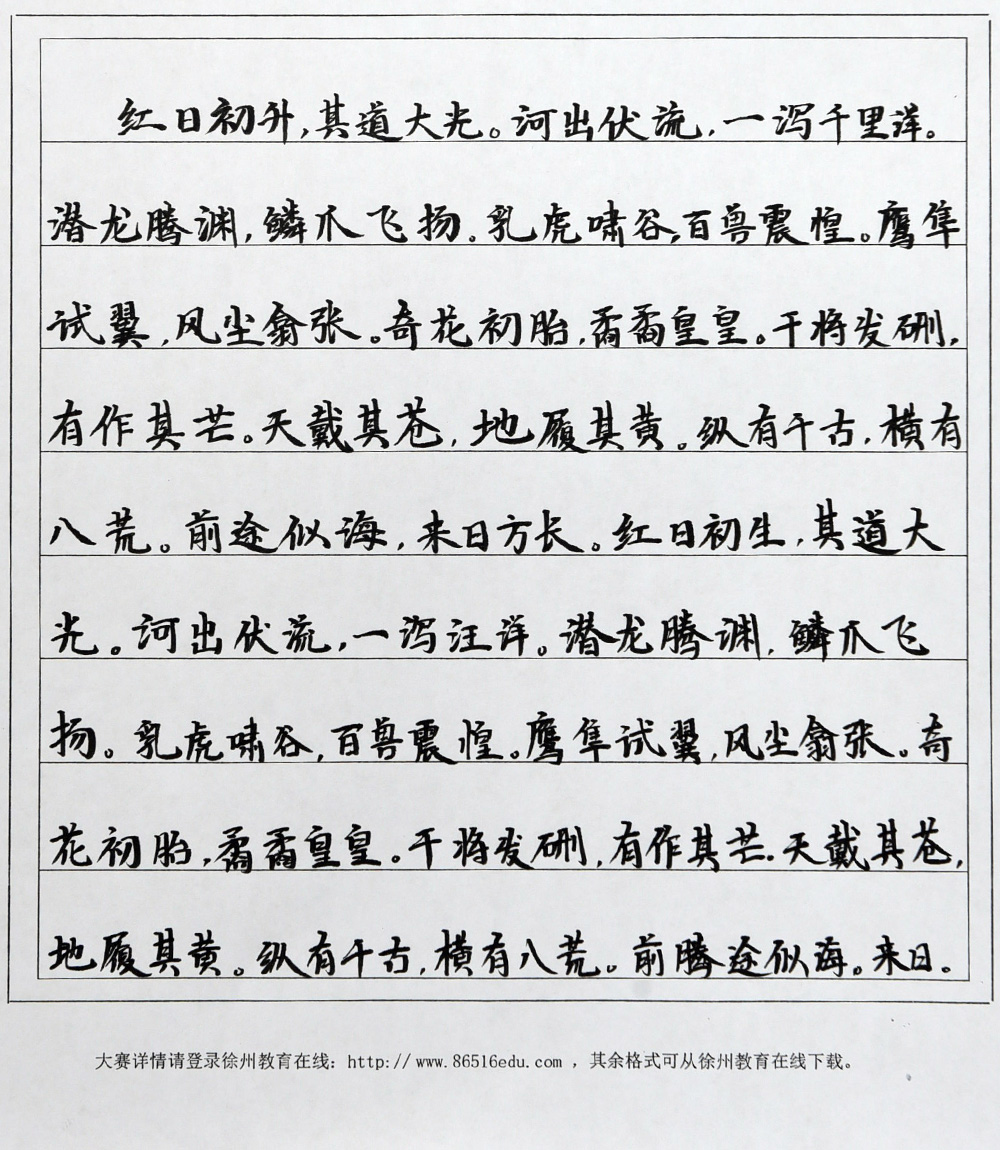 红日初升,其道大光。河出伏流,一泻千里洋。
潜龙腾渊,鳞爪飞扬。乳虎啸谷,百兽震惶。鹰隼
试翼,风尘翕张。奇花初胎,矞矞皇皇。干将发硎,
有作其芒。天戴其苍,地履其黄。纵有千古,横有
八荒。前途似海,来日方长。红日初生,其道大
光。河出伏流,一泻汪洋。潜龙腾渊,鳞爪飞
扬。乳虎啸谷,百兽震惶。鹰隼试翼,风尘翕张。奇
花初胎,矞矞皇皇。干将发硎,有作其芒.天戴其苍,
地履其黄。纵有千古,横有八荒。前腾途似海。来日。
大赛详情请登录徐州教育在线：http://www.86516edu.com ，其余格式可从徐州教育在线下载。